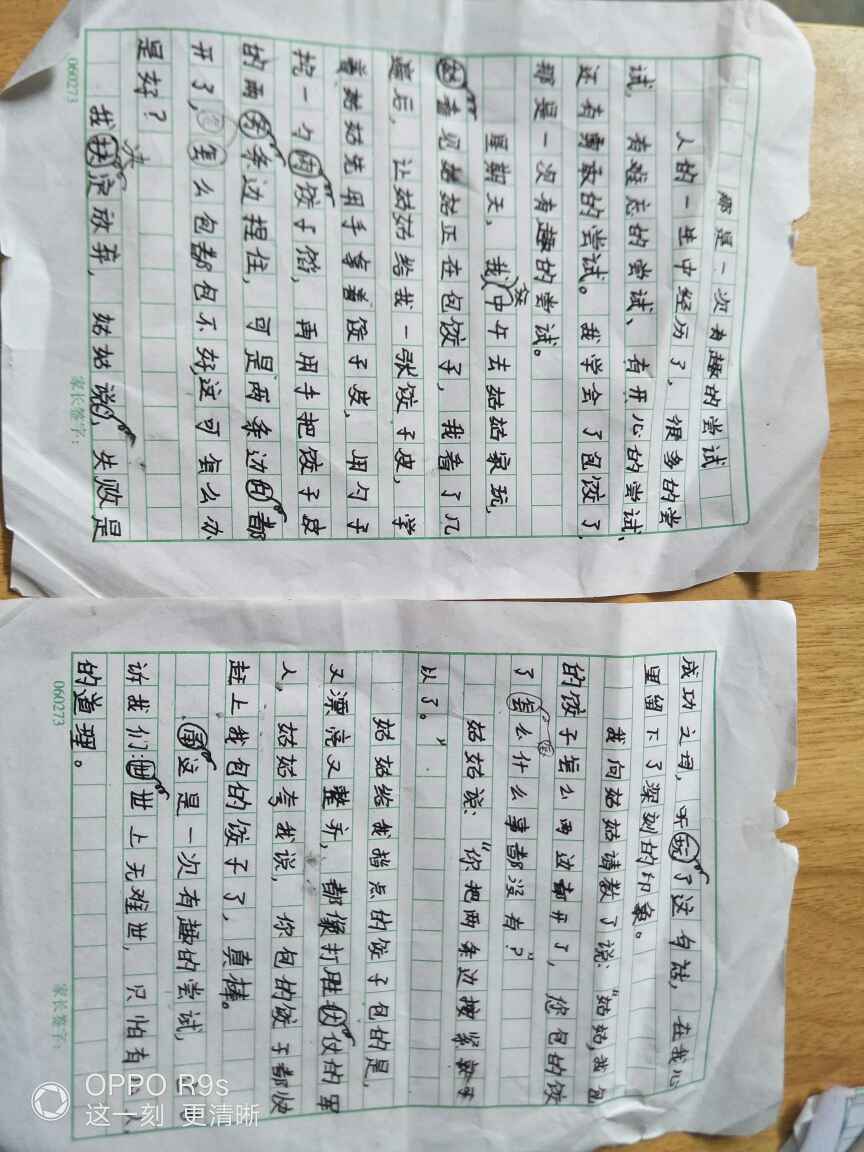 那是一次有趣的尝试
人的一生中经历了，很多的尝
试，有难忘的尝试、有开心的尝试、
还有勇敢的尝试。我学会了包饺子，
那是一次有趣的尝试。
星期天，我中午去姑姑家玩，
看见姑姑正在包饺子，我看了几
遍后，让姑姑给我一张饺子皮，学
着姑姑先用手拿着饺子皮，用勺子
挖一勺饺子馅，再用手把饺子皮
的两条边捏住，可是两条边都
开了，怎么包都包不好，这可怎么办
是好？
我决定放弃，姑姑说，失败是
060273
家长签字：
成功之母，听了这句话，在我心
里留下了深刻的印象。
我向姑姑请教了说：“姑姑，我包
的饺子怎么两边都开了，您包的饺
了怎么什么事都没有？”
姑姑说：“你把两条边按紧就可
以了。”
姑姑给我指点的饺子包的是，
又漂亮又整齐，都像打胜仗的军
人，姑姑夸我说，你包的饺子都快
赶上我包的饺子了，真棒。
这是一次有趣的尝试，
诉我们世上无难世，只怕有 人
的道理。
060273
家长签字：
OPPO R9s
这一刻 更清晰